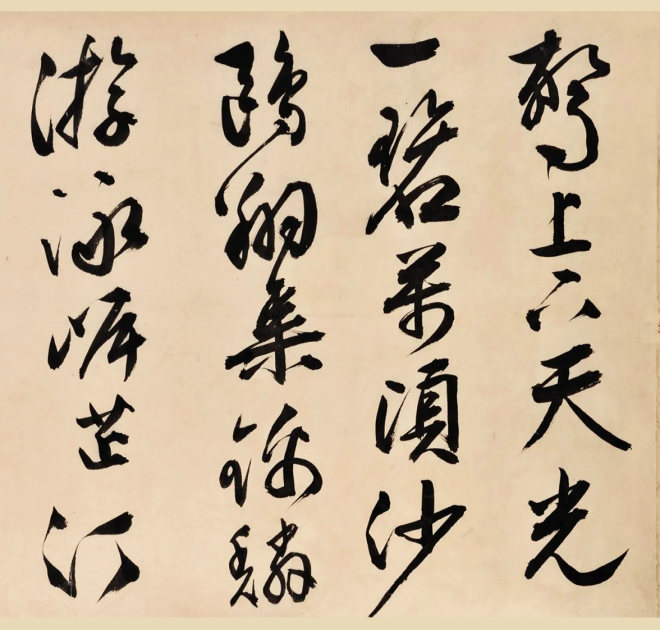 驚上下天光
一碧萬頃沙
鷗翔集錦鱗
游泳岸芷汀